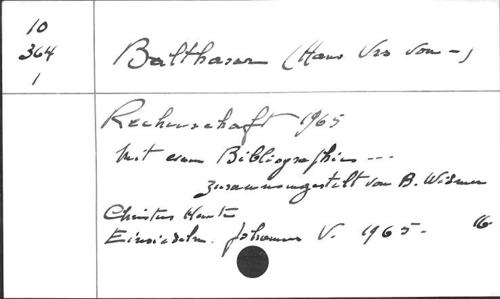 10
364
1
Balthasar (Hans Urs von –)
Rechenschaft 1965
Mit einer Bibliographie ---
zusammengestellt von B. Widmer
Christus Heute
Einsiedeln. Johannes V. 1965. 16